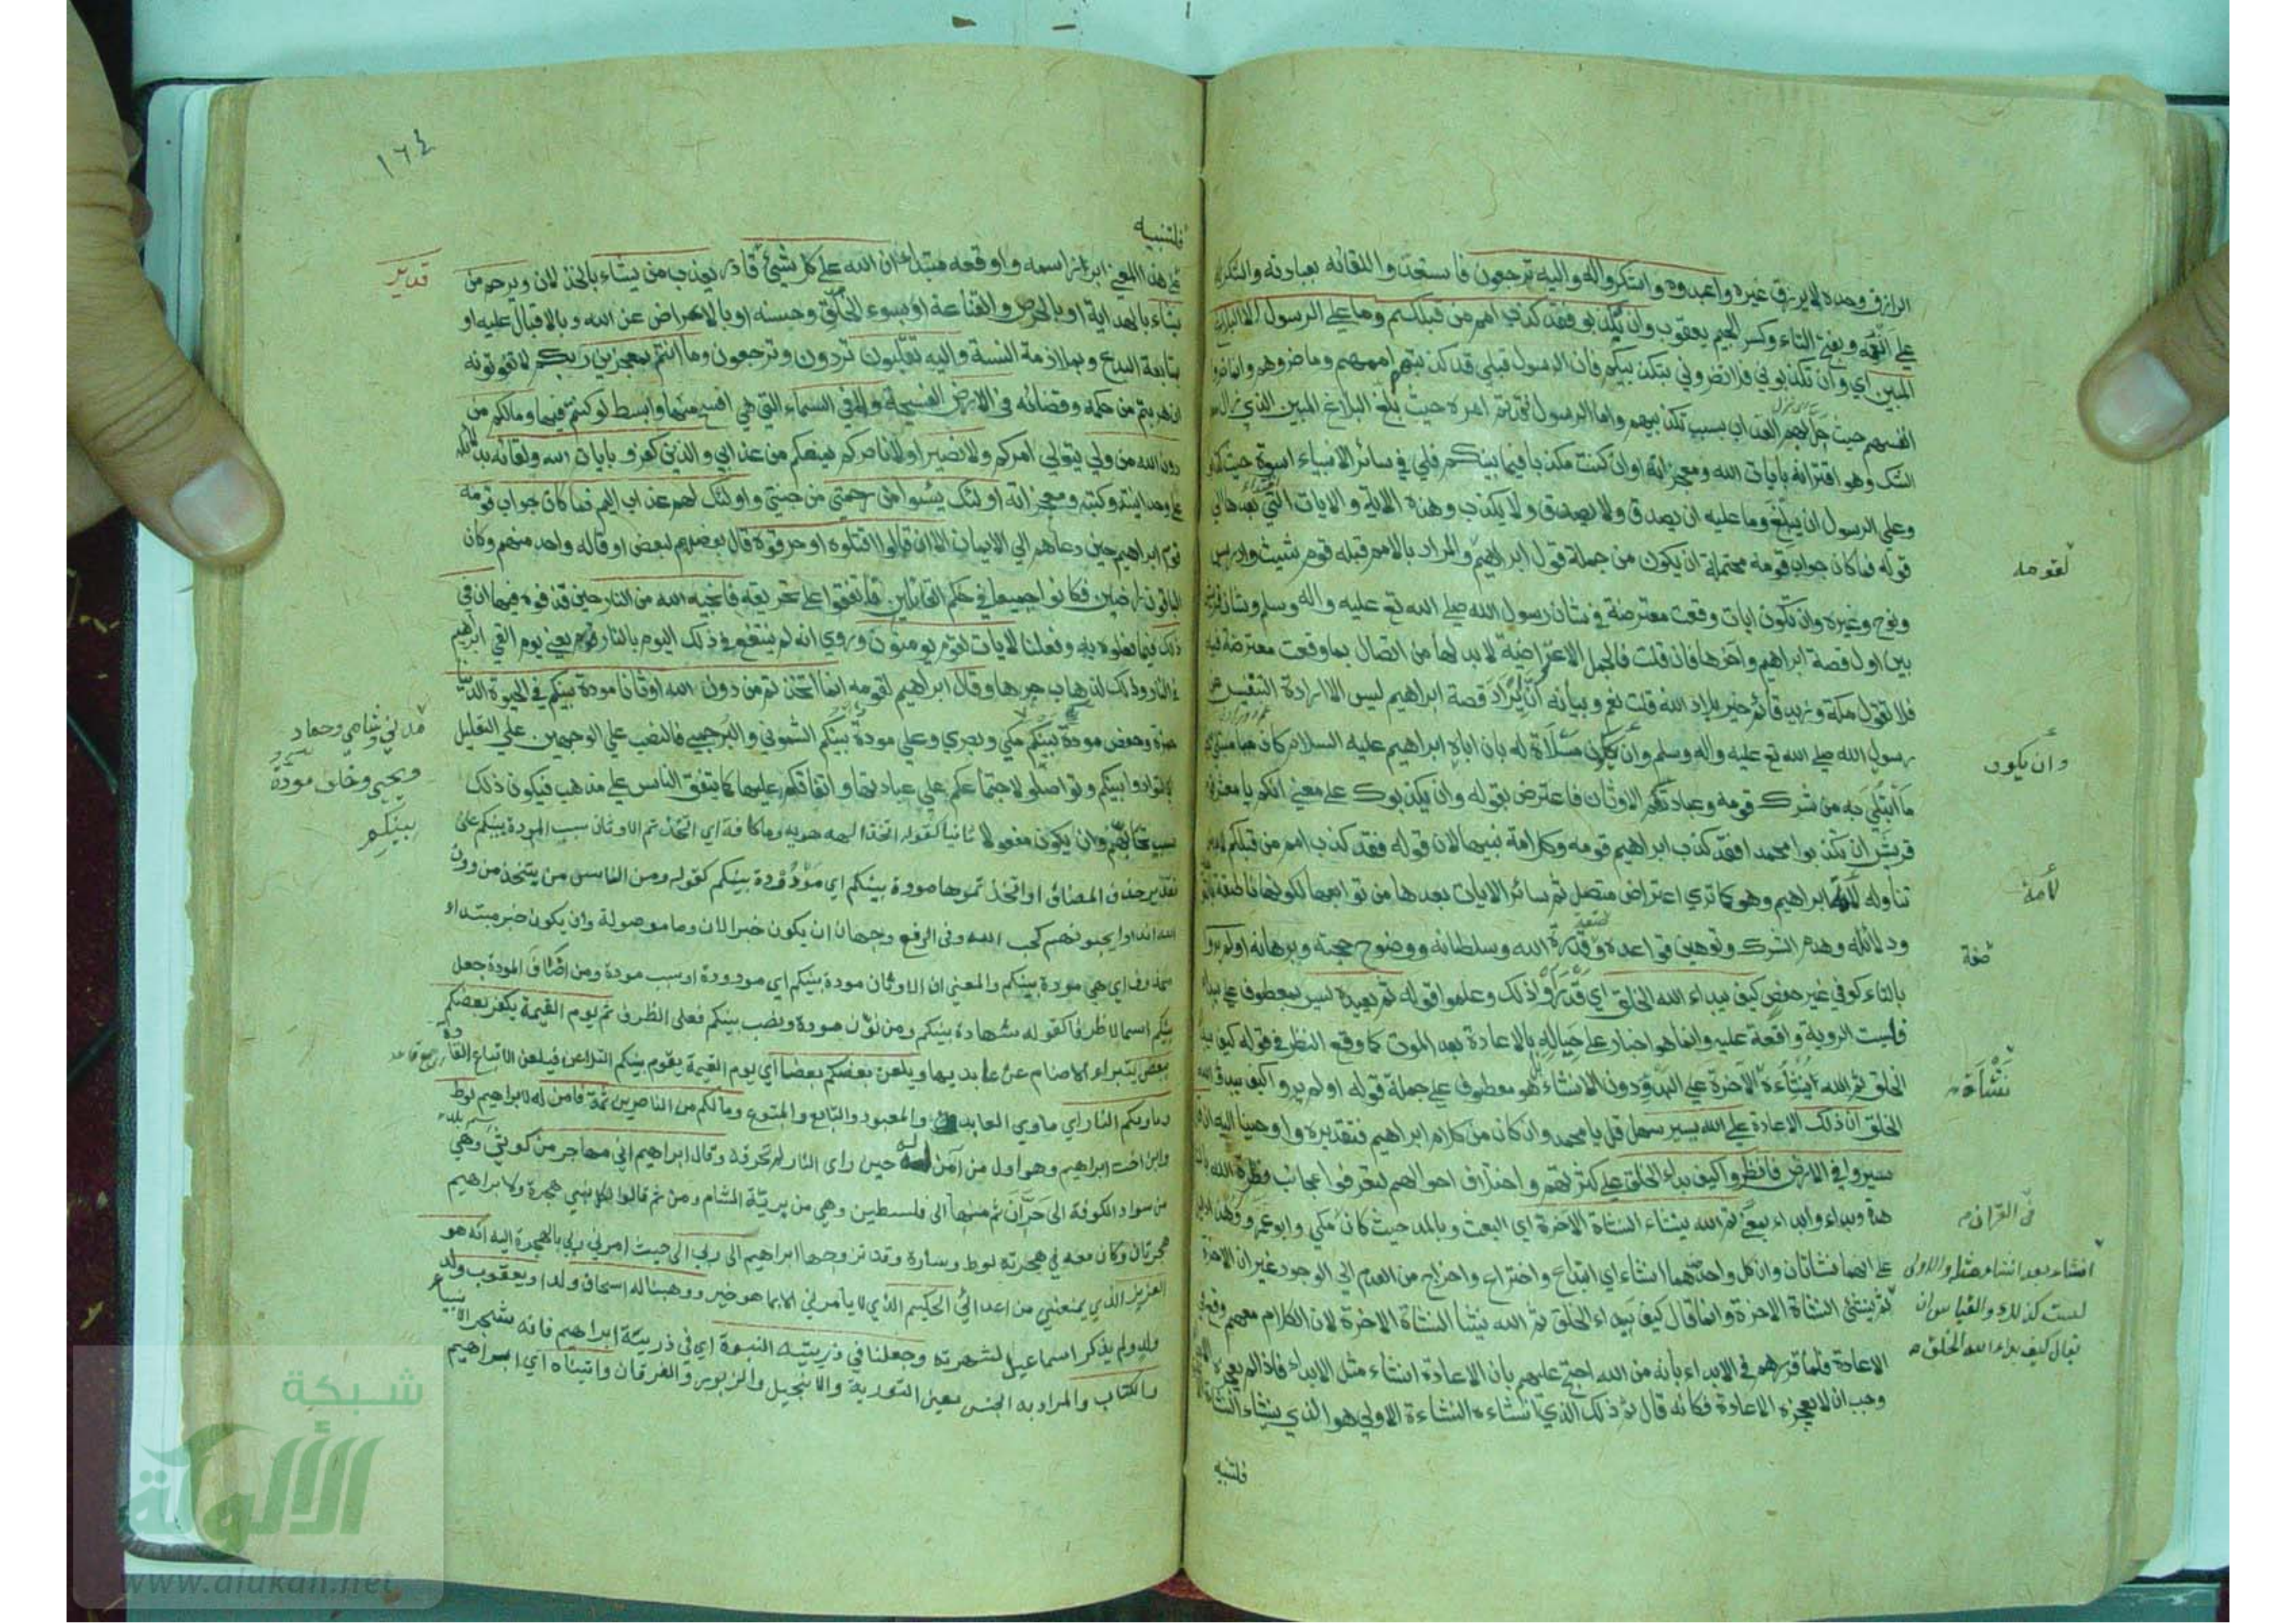 الرازق وحده لا يرزق غيره واعبدوه واشكروا له واليه ترجعون فاستعدوا للقائه بعبادته والشكر له
على انعمه وبفتح التاء وكسر الجيم يعقوب وان تكذبوا فقد كذب امم من قبلكم وما على الرسول الا البلاغ
المبين اي وان تكذبوني فلا تضروني بتكذيبكم فان الرسل قبلي قد كذبتهم اممهم وما ضروهم وانما ضروا
انفسهم حيث حل بهم العذاب بسبب تكذيبهم واما الرسول فقد تم امره حيث بلغ البلاغ المبين الذي زال معه
الشك وهو اقترانه بايات الله ومعجزاته او ان كنت مكذبا فيما بينكم فلي في سائر الانبياء اسوة حيث كذبوا
وعلى الرسول ان يبلغ وما عليه ان يصدق ولا يكذب وهذه الاية والايات التي بعدها الى
قوله فما كان جواب قومه محتملة ان يكون من جملة قول ابراهيم والمراد بالامم قبله قوم شيث وادريس
لقومه
ونوح وغيره وان تكون ايات وقعت معترضة في شان رسول الله صلى الله تع عليه واله وسلم وشان قريش
بين اول قصة ابراهيم واخرها فان قلت فالجمل الاعتراضية لا بد لها من اتصال بما وقعت معترضة فيه
فلا تقول مكة وزيد قائم خير بلاد الله قلت نعم وبيانه ان ايراد قصة ابراهيم ليس الا ارادة التنفيس عن
رسول الله صلى الله تع عليه واله وسلم وان يكون مسلاة له بان اباه ابراهيم عليه السلام كان مبتلى
وان يكون
ما ابتلي به من شرك قومه وعبادتهم الاوثان فاعترض بقوله وان تكذبوا على معنى انكم يا معشر
قريش ان تكذبوا محمدا فقد كذب ابراهيم قومه وكل امة نبيها لان قوله فقد كذب امم من قبلكم لا بد
تناوله لامة ابراهيم وهو كما ترى اعتراض متصل ثم سائر الايات بعدها من توابعها لكونها ناطقة بالتوحيد
لامة
ودلائله وهدم الشرك وتوهين قواعده وقدرة الله وسلطانه ووضوح حجته وبرهانه اولم يروا
صفة
بالتاء كوفي غير حفص كيف يبداء الله الخلق اي قد راوا ذلك وعلموا قوله ثم يعيده ليس بمعطوف على يبداء
فليست الروية واقعة عليه وانما هو اخبار على حياله بالاعادة بعد الموت كما وقع النظر في قوله كيف بدا
الخلق ثم الله ينشئ النشاة الاخرة على البدو دون الانشاء بل هو معطوف على جملة قوله اولم يروا كيف يبدئ الله
نشاة
الخلق ان ذلك الاعادة على الله يسير سهل قل يا محمد وان كان من كلام ابراهيم فتقديره واوحينا اليه ان قل
سيروا في الارض فانظروا كيف بداء الخلق على كثرتهم واختلاف احوالهم لتعرفوا عجائب فطرة الله
وبداء وابداء بمعنى ثم الله ينشاء النشاة الاخرة اي البعث وبالمد حيث كان مكي وابو عمرو
في القران
على انهما نشاتان وان كل واحدة منهما انشاء اي ابتداع واختراع واخراج من العدم الى الوجود غير ان الاخرة
انشاء بعد انشاء مثله والاولى
ليست كذلك والقياس ان
يقال كيف بداء الله الخلق
ثم ينشئ النشاة الاخرة وانما قال كيف بداء الخلق ثم الله ينشئ النشاة الاخرة لان الكلام معهم وقع في
الاعادة فلما قررهم في الابداء بانه من الله احتج عليهم بان الاعادة انشاء مثل الابداء فاذا لم يعجزه
وجب ان لا يعجزه الاعادة فكانه قال ثم ذلك الذي انشاء النشاءة الاولى هو الذي ينشاء النشاة
فلتنبيه
١٦٤
فلتنبيه
على هذا المعنى ابرز اسمه واوقعه مبتدا ان الله على كل شيئ قادر يعذب من يشاء بالخذلان ويرحم من
قدير
يشاء بالهداية او بالحرص والقناعة او بسوء الخلق وحسنه او بالاعراض عن الله وبالاقبال عليه او
بمتابعة البدع وبملازمة السنة واليه تقلبون تردون وترجعون وما انتم بمعجزين ربكم لا تفوتونه
ان هربتم من حكمه وقضائه في الارض الفسيحة ولا في السماء التي هي افسح منها وابسط لو كنتم فيها وما لكم من
دون الله من ولي يتولى امركم ولا نصير او لا ناصركم يمنعكم من عذابي والذين كفروا بايات الله ولقائه بدلائله
على وحدانيته وكتبه ومعجزاته اولئك يئسوا من رحمتي من جنتي واولئك لهم عذاب اليم فما كان جواب قومه
قوم ابراهيم حين دعاهم الى الايمان الا ان قالوا اقتلوه او حرقوه قال بعضهم لبعض او قاله واحد منهم وكان
الباقون راضين فكانوا جميعا في حكم القائلين فاتفقوا على تحريقه فانجيه الله من النار حين قذفوه فيها ان في
ذلك فيما فعلوه به وفعلنا لايات لقوم يومنون وروي انه لم ينتفع في ذلك اليوم بالنار يعني يوم القي ابراهيم
في النار وذلك لذهاب حرها وقال ابراهيم لقومه انما اتخذتم من دون الله اوثانا مودة بينكم في الحيوة الدنيا
حمزة وحفص مودة بينكم مكي وبصري وعلي مودة بينكم الشموني والبرجمي فالنصب على الوجهين على التعليل
مدني وشامي وحماد
ويحيى وخلف مودة
بينكم
لتتوادوا بينكم وتواصلوا لاجتماعكم على عبادتها واتفاقكم عليها كما يتفق الناس على مذهب فيكون ذلك
سبب تحابهم وان يكون مفعولا ثانيا كقوله اتخذ الهه هويه وما كافة اي اتخذتم الاوثان سبب المودة بينكم على
تقدير حذف المضاف او اتخذتموها مودة بينكم اي مودودة بينكم كقوله ومن الناس من يتخذ من دون
الله اندادا يحبونهم كحب الله وفي الرفع وجهان ان يكون خبرا لان وما موصولة وان يكون خبر مبتداء
محذوف اي هي مودة بينكم والمعنى ان الاوثان مودة بينكم اي مودودة او سبب مودة ومن اضاف المودة جعل
بينكم اسما لا ظرفا كقوله شهادة بينكم ومن نون مودة ونصب بينكم فعلى الظرف ثم يوم القيمة يكفر بعضكم
ببعض يتبراء الاصنام عن عابديها ويلعن بعضكم بعضا اي يوم القيمة يقوم بينكم التلاعن فيلعن الاتباع القادة
وماويكم النار اي ماوى العابد والمعبود والتابع والمتبوع وما لكم من الناصرين ثمة فامن له لابراهيم لوط
وابن اخت ابراهيم وهو اول من امن له حين راى النار لم تحرقه وقال ابراهيم اني مهاجر من كوثى وهي
من سواد الكوفة الى حران ثم منها الى فلسطين وهي من برية الشام ومن ثم قالوا لكل نبي هجرة ولابراهيم
هجرتان وكان معه في هجرته لوط وسارة وقد تزوجها ابراهيم الى ربي الى حيث امرني ربي بالهجرة اليه انه هو
العزيز الذي يمنعني من اعدائي الحكيم الذي لا يامرني الا بما هو خير ووهبنا له اسحاق ولدا ويعقوب ولد
ولد ولم يذكر اسماعيل لشهرته وجعلنا في ذريته النبوة اي في ذرية ابراهيم فانه شجر الانبياء
والكتاب والمراد به الجنس يعني التورية والانجيل والزبور والفرقان واتيناه اي ابراهيم
شبكة
الألوكة
www.alukah.net